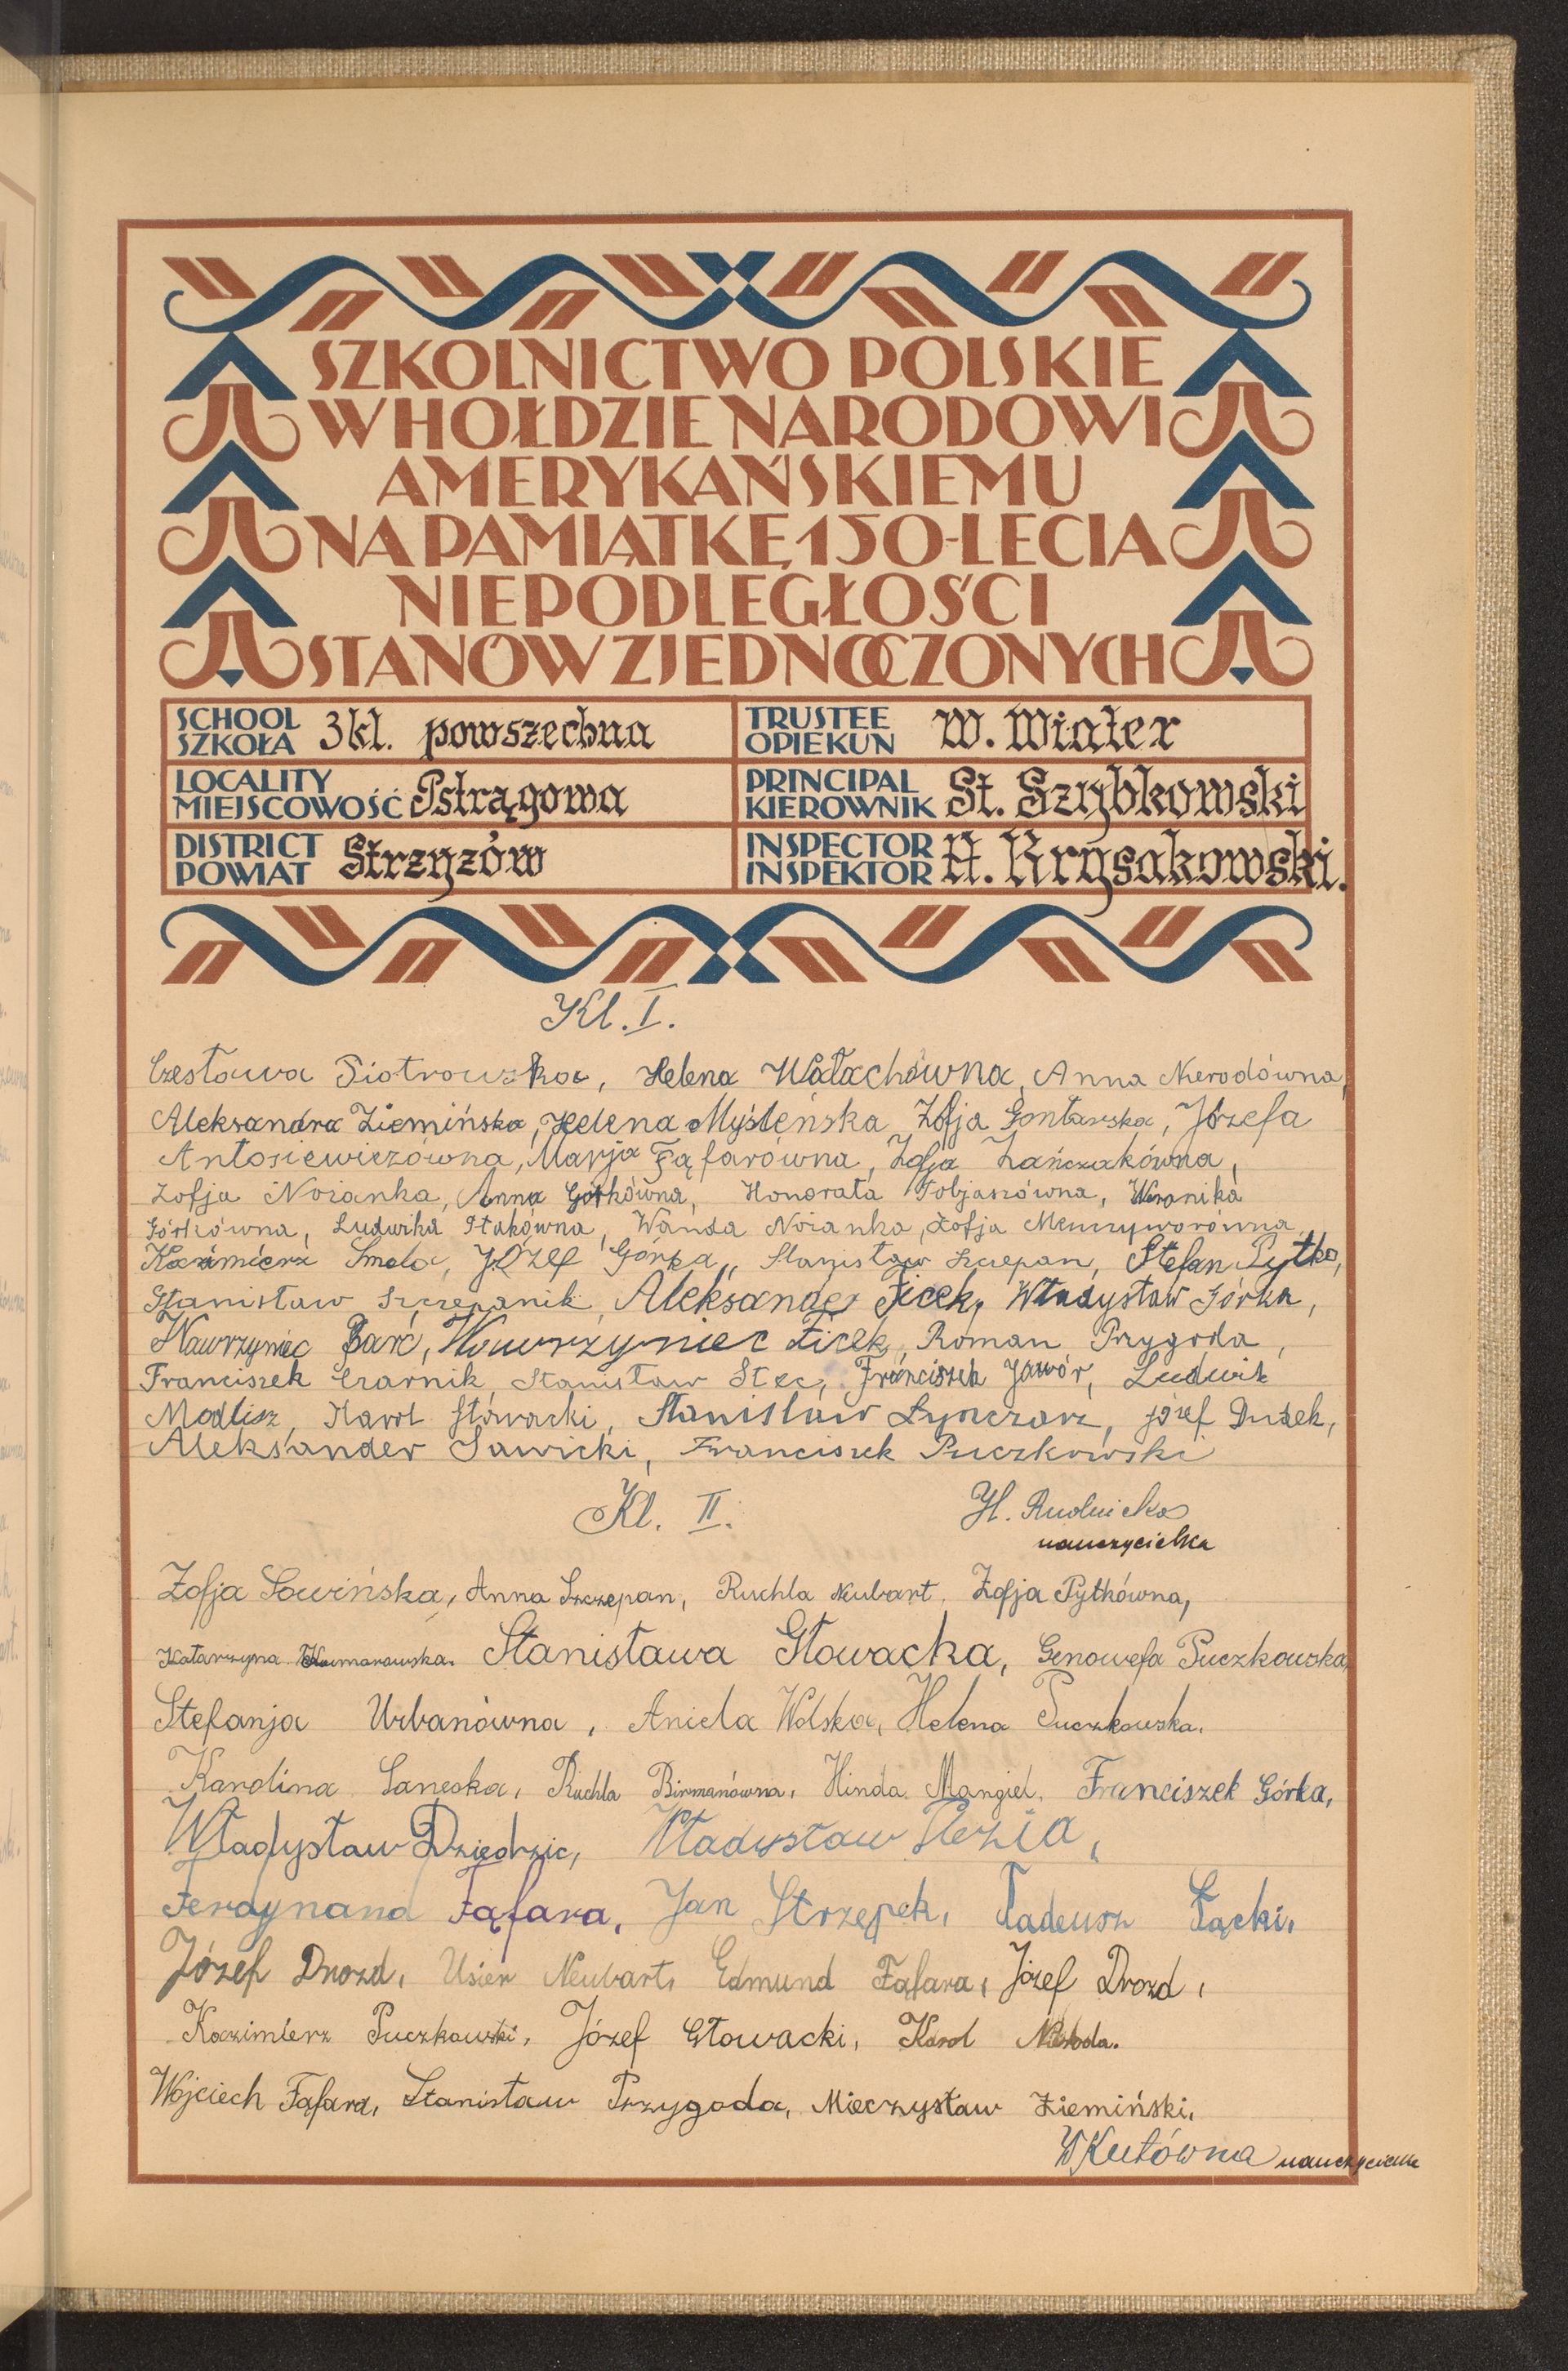 SZKOLNICTWO POLSKIE
W HOŁDZIE NARODOWI
AMERYKAŃSKIEMU
NA PAMIĄTKĘ 150-LECIA
NIEPODLEGŁOŚCI
STANÓW ZJEDNOCZONYCH
SCHOOL SZKOŁA 3 kl. powszechna
TRUSTEE OPIEKUN W. Wiater
LOCALITY MIEJSCOWOŚĆ Pstrągowa
PRINCIPAL KIEROWNIK St. Szybkowski
DISTRICT POWIAT Strzyżów
INSPECTOR INSPEKTOR H. Krysakowski.
Kl. I.
Czesława Piotrowska, Helena Wałachówna, Anna Nierodówna,
Aleksandra Ziemińska, Helena Myśleńska, Zofja Gontarska, Józefa
Antosiewiczówna, Marja Fąfarówna, Zofja Łańczakówna,
Zofja Noianka, Anna Górkówna, Honorata Tobjaszówna, Weronika
Górkówna, Ludwika Ptakówna, Wanda Noianka, Zofja
Kazimierz Smola, Józef Górka, Stanisław Szczepan, Stefan Pytko,
Stanisław Szczepanik, Aleksander Ficek, Władysław Górka,
Wawrzyniec Barć, Wawrzyniec Ficek, Roman Przygoda,
Franciszek Czarnik, Stanisław Stec, Franciszek Jawór, Ludwik
Modlisz, Karol Słowacki, Stanisław Łynczarz, Józef Dudek,
Aleksander Sawicki, Franciszek Puczkowski
Kl. II.
H. Rudnicka
nauczycielka
Zofja Sowińska, Anna Szczepan, Ruchla Neubart, Zofja Pytkówna,
Katarzyna Komarowska. Stanisława Głowacka, Genowefa Puczkowska,
Stefanja Urbanówna, Aniela Wolska, Helena Puczkowska.
Karolina Sanecka, Ruchla Birmanówna, Hinda Mangiel, Franciszek Górka,
Władysław Dziedzic, Władysław
Ferdynand Fąfara, Jan Strzępek, Tadeusz Łącki,
Józef Drozd, Usier Neubart, Edmund Fąfara, Józef Drozd,
Kazimierz Puczkowski, Józef Głowacki, Karol Nieroda.
Wojciech Fąfara, Stanisław Przygoda, Mieczysław Ziemiński.
W Kutówna nauczycielka